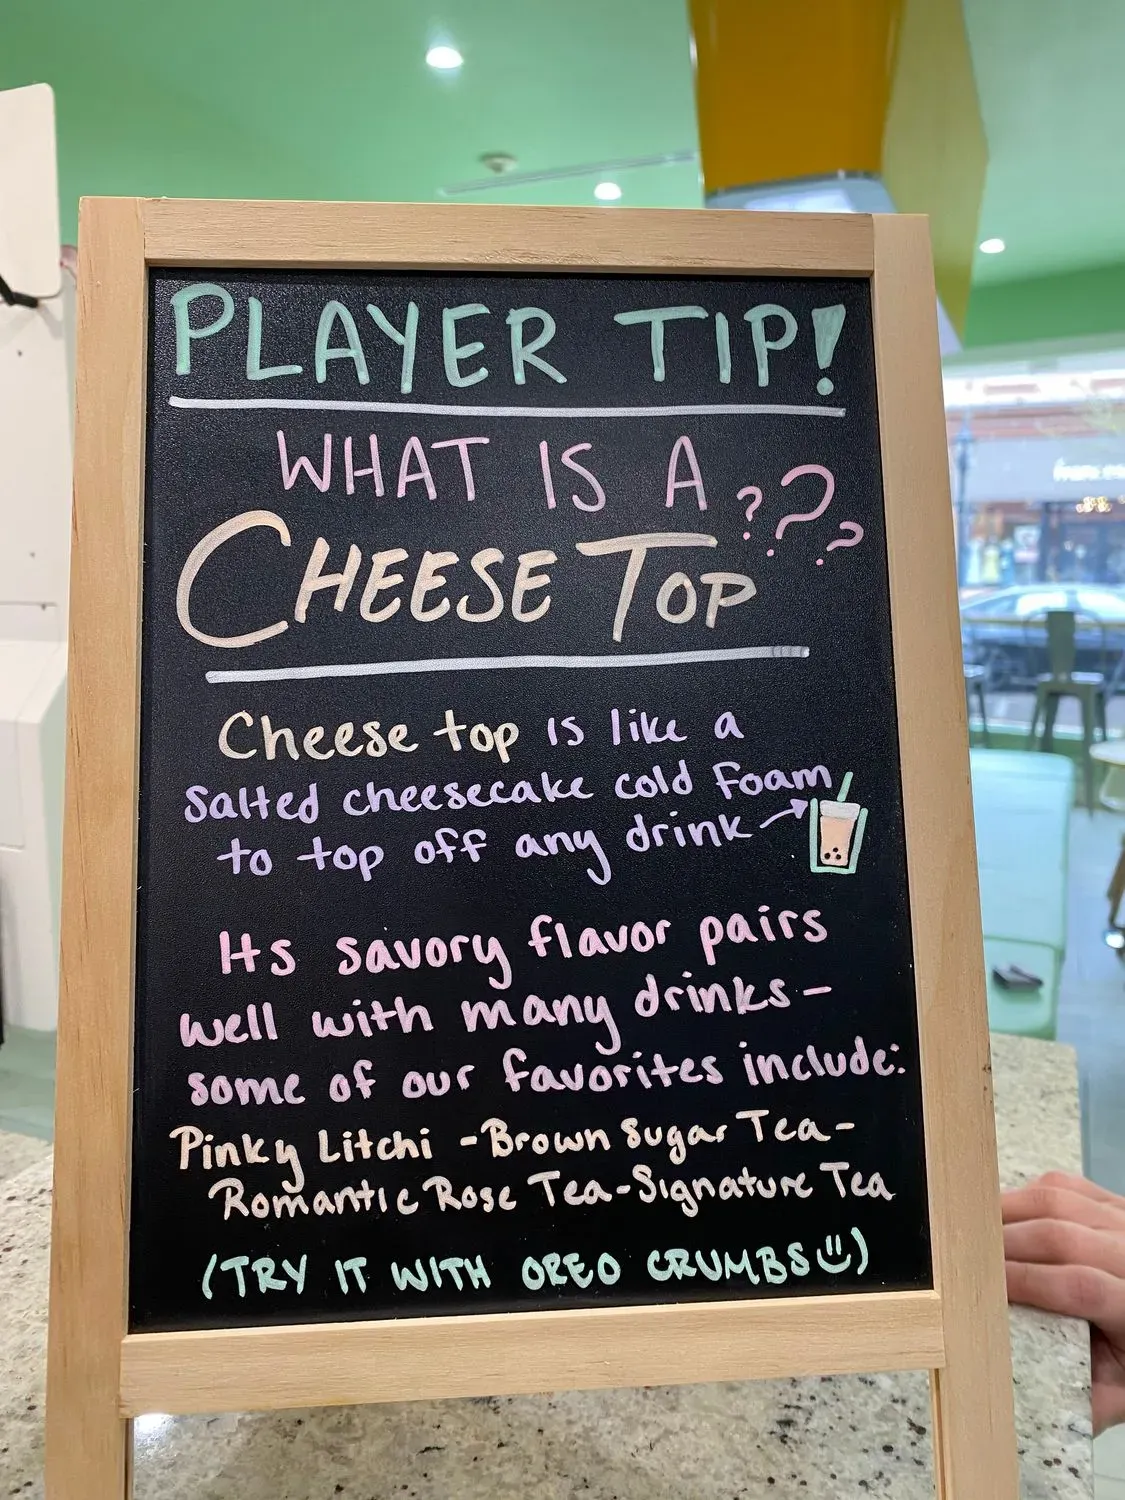 PLAYER TIP!
WHAT IS A
CHEESE TOP ???
Cheese top is like a
salted cheesecake cold foam
to top off any drink
Its savory flavor pairs
well with many drinks-
some of our favorites include:
Pinky Litchi - Brown Sugar Tea-
Romantic Rose Tea-Signature Tea
(TRY IT WITH OREO CRUMBS)